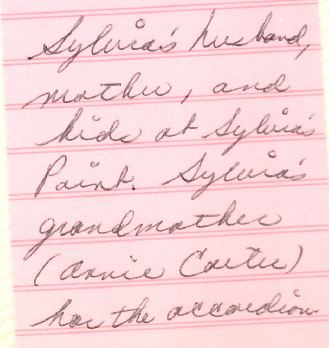 Sylvia's husband,
mother, and
kids at Sylvia's
Point. Sylvia's
grandmother
(Annie Carter)
has the accordion.